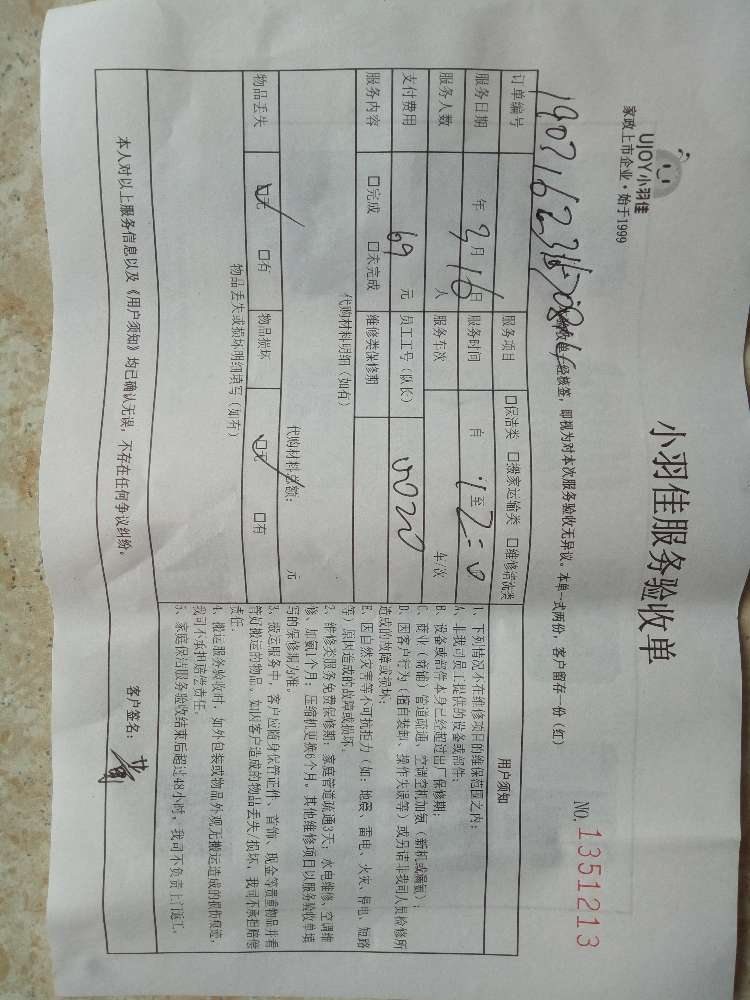 UJOY小羽佳
家政上市企业·始于1999
小羽佳服务验收单
NO. 1351213
经核签，即视为对本次服务验收无异议。本单一式两份，客户留存一份（红）
订单编号 服务项目 □保洁类 □搬家运输类 □维修清洗类
服务日期 年 3月16日 服务时间 自 至
服务人数 人 服务车次 车/次
支付费用 69 元 员工工号（队长） 5020
服务内容 □完成 □未完成 维修类保修期
代购材料明细（如有）
代购材料总额： 元
物品丢失 □无 □有 物品损坏 □无 □有
物品丢失或损坏明细填写（如有）
用户须知
1、下列情况不在维修项目的维保范围之内：
A、非我司员工提供的设备或部件；
B、设备或部件本身已经超过出厂保修期；
C、商业（商铺）管道疏通、空调空机加氨（新机或漏氨）；
D、因客户行为（擅自装卸、操作失误等）或另请非我司人员检修所
造成的故障或损坏。
E、因自然灾害等不可抗拒力（如：地震、雷电、火灾、停电、短路
等）原因造成的故障或损坏。
2、维修类服务免费保修期：家庭管道疏通3天；水电维修、空调维
修、加氨1个月；压缩机更换6个月。其他维修项目以服务验收单填
写的保修期为准。
3、搬运服务中，客户应随身保管证件、首饰、现金等贵重物品并看
管好搬运的物品。如因客户造成的物品丢失/损坏，我司不承担赔偿
责任。
4、搬运服务验收时，如外包装或物品外观无搬运造成的损伤痕迹，
我司不承担赔偿责任。
5、家庭保洁服务验收结束后超过48小时，我司不负责上门返工。
本人对以上服务信息以及《用户须知》均已确认无误，不存在任何争议纠纷。
客户签名：